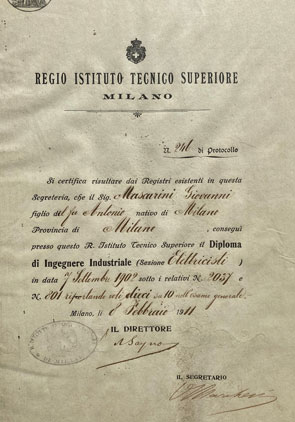 REGIO ISTITUTO TECNICO SUPERIORE
MILANO
N. 241 di Protocollo
Si certifica risultare dai Registri esistenti in questa
Segreteria, che il Sig. Mascarini Giovanni
figlio del fu Antonio nativo di Milano
Provincia di Milano, conseguì
presso questo R. Istituto Tecnico Superiore il Diploma
di Ingegnere Industriale (Sezione Elettricisti)
in data 7 Settembre 1902 sotto i relativi N. 2037 e
N. 801 riportando voti dieci su 10 nell'esame generale.
Milano, li 8 Febbraio 1911
IL DIRETTORE
IL SEGRETARIO